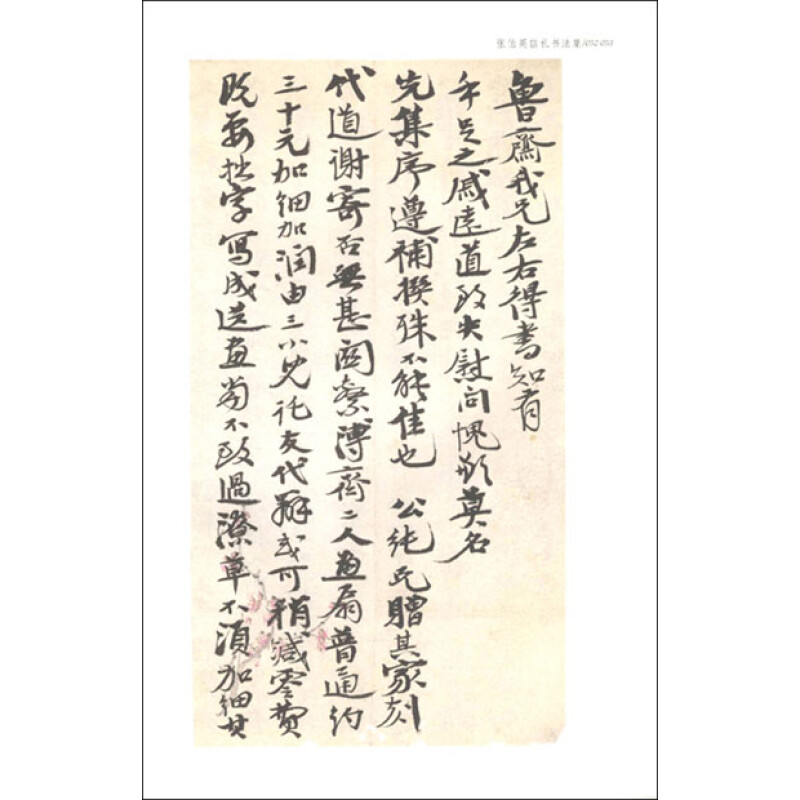 张伯英信札书法集/052-053
魯齋我兄左右得書知有
手足之戚遠道致失慰问愧歉莫名
先集序遵補撰殊不能佳也 公純兄贈其家刻
代道谢寄否無甚関繫溥齋二人画扇普通约
三十元加細加润由三小兒託友代辦或可稍減零費
既要拙字寫成送画當不致過潦草不須加細其